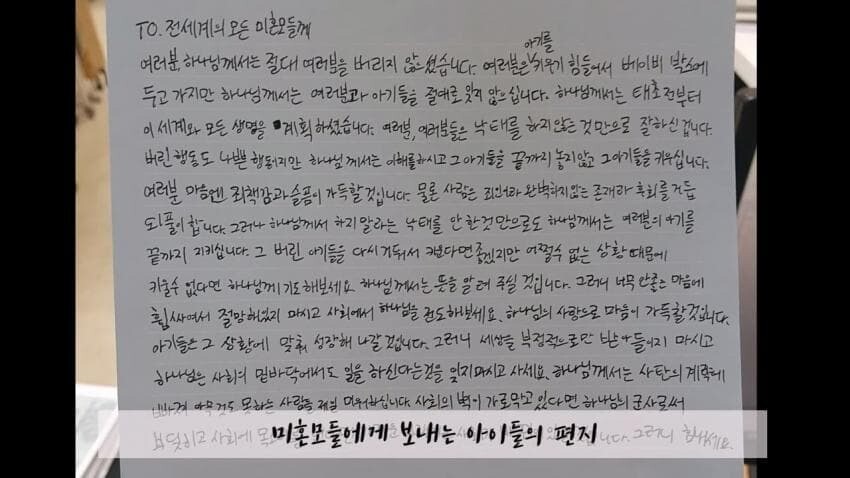 TO. 전세계의 모든 미혼모들께
여러분, 하나님께서는 절대 여러분을 버리지 않으셨습니다. 여러분은 아기를 키우기 힘들어서 베이비 박스에
두고 가지만 하나님께서는 여러분과 아기들을 절대로 잊지 않으십니다. 하나님께서는 태초전부터
이 세계와 모든 생명을 계획하셨습니다. 여러분, 여러분들은 낙태를 하지않는 것 만으로 잘하신 겁니다.
버린 행동도 나쁜 행동이지만 하나님께서는 이해를하시고 그 아기들을 끝까지 놓지않고 그아기들을 키우십니다.
여러분 마음엔 죄책감과 슬픔이 가득할 것입니다. 물론 사람은 죄인이라 완벽하지않는 존재라 후회를 거듭
되풀이 합니다. 그러나 하나님께서 하지말라는 낙태를 안 한것 만으로도 하나님께서는 여러분의 아기를
끝까지 지키십니다. 그 버린 아기들을 다시 거둬서 키운다면 좋겠지만 어쩔수 없는 상황 때문에
키울수 없다면 하나님께 기도해보세요. 하나님께서는 뜻을 알려 주실 것입니다. 그러니 너무 안좋은 마음에
휩싸여서 절망해있지 마시고 사회에서 하나님을 전도해보세요. 하나님의 사랑으로 마음이 가득할것입니다.
아기들은 그 상황에 맞춰 성장해 나갈 것입니다. 그러니 세상을 부정적으로만 받아들이지 마시고
하나님은 사회의 밑바닥에서도 일을 하신다는것을 잊지마시고 사세요. 하나님께서는 사탄의 계략에
빠져 아무것도 못하는 사람을 제일 미워하십니다. 사회의 벽이 가로막고 있다면 하나님의 군사로써
부딪히고 사회에 그러니 힘내세요.
미혼모들에게 보내는 아이들의 편지